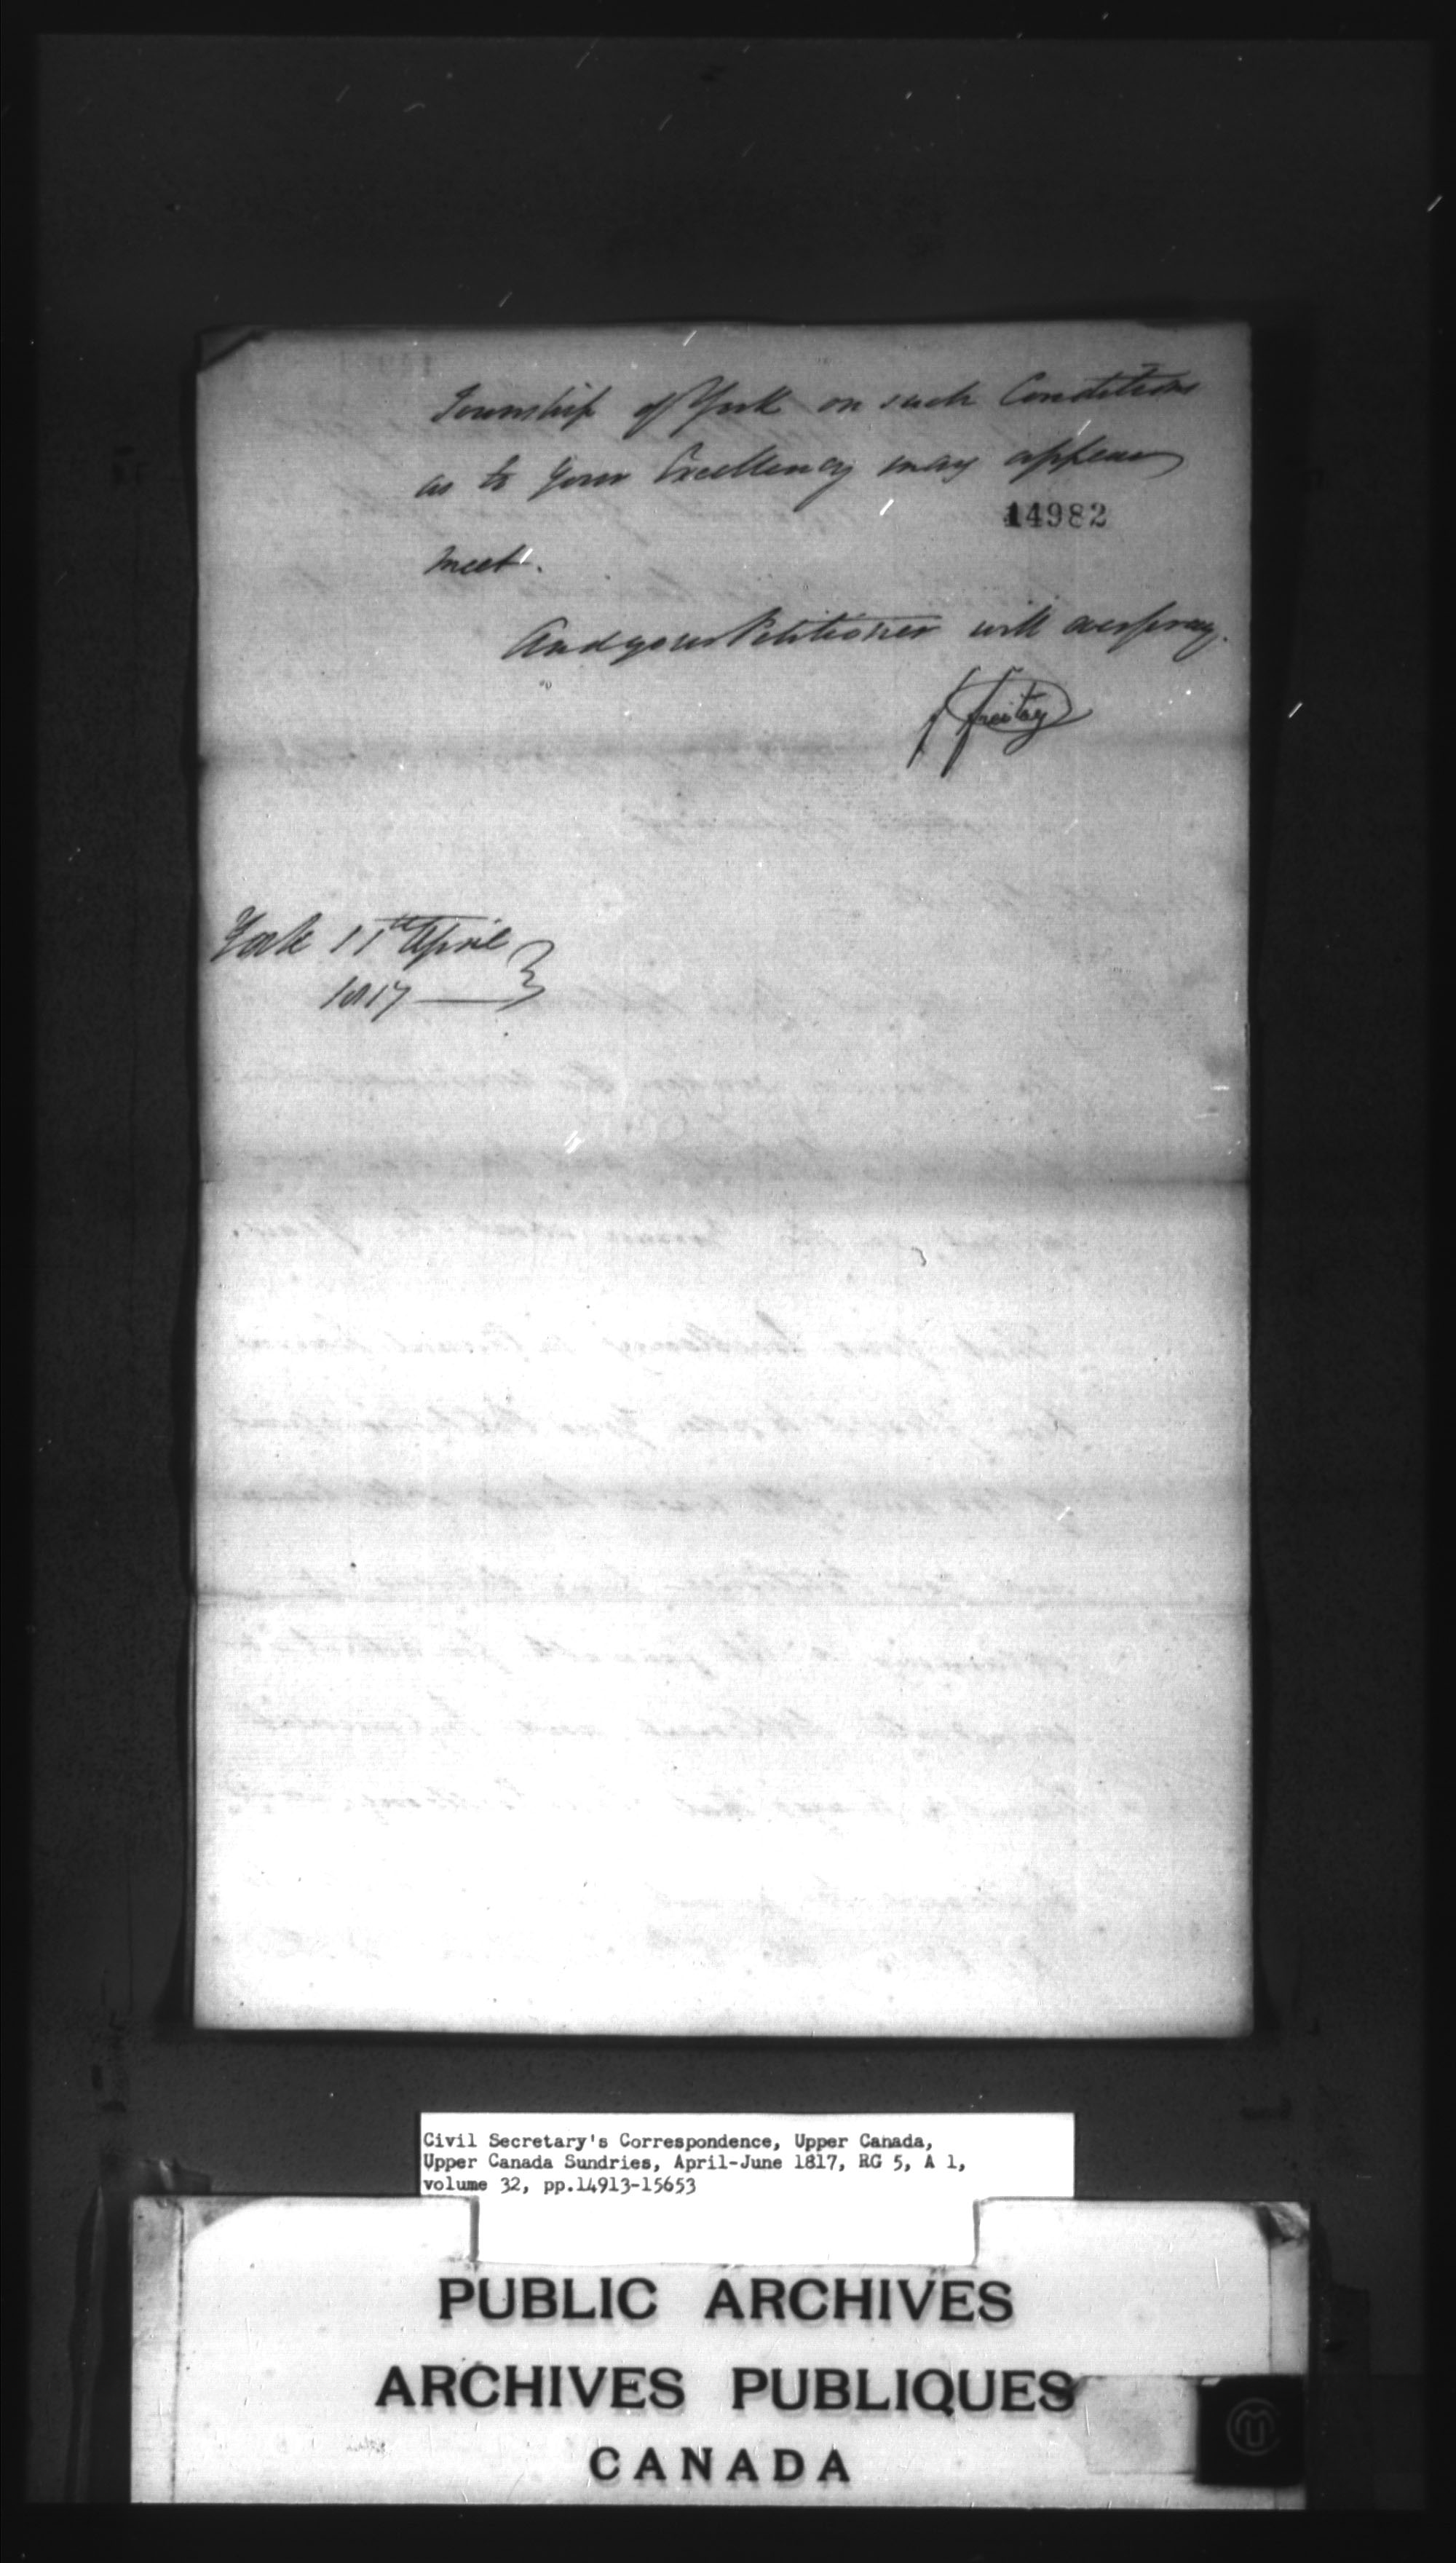 Township of York on such Conditions
as to Your Excellency may appear
14982
meet.
And your Petitioner will ever pray.
York 11th April
1817
Civil Secretary's Correspondence, Upper Canada,
Upper Canada Sundries, April-June 1817, RG 5, A 1,
volume 32, pp.14913-15653
PUBLIC ARCHIVES
ARCHIVES PUBLIQUES
CANADA